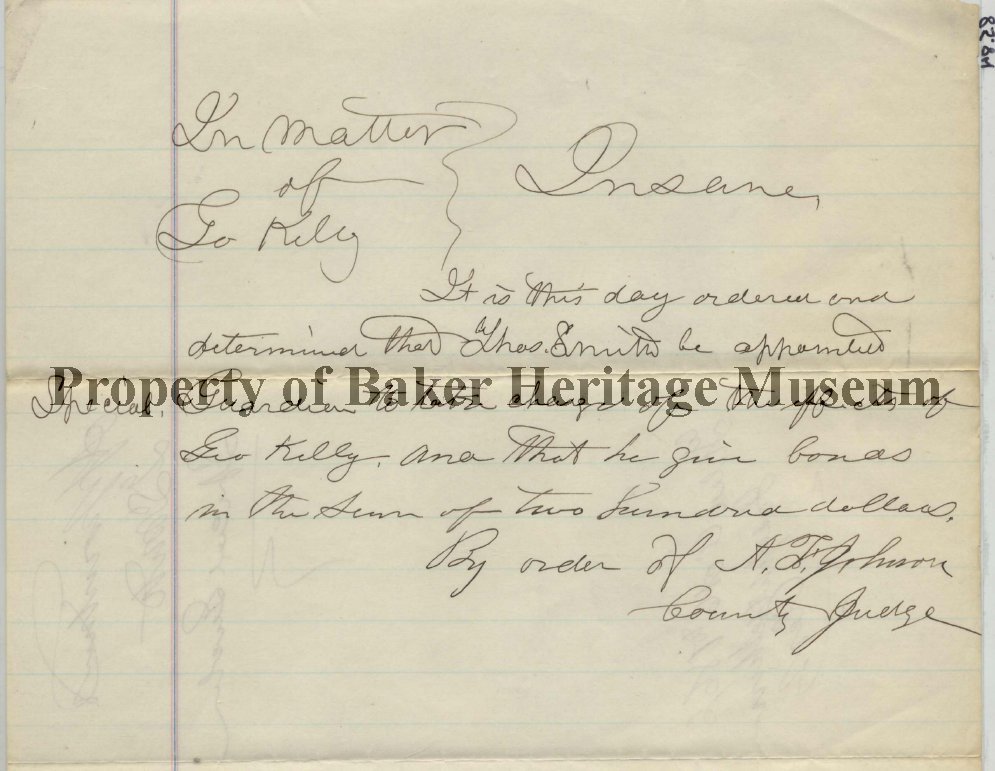 In Matter
of
Go Kelly
Insane,
It is this day ordered and
determined that Thos. Smith be appointed
Special. Guardian to take charge of the effects of
Property of Baker Heritage Museum
Geo Kelly. and that he give bonds
in the sum of two hundred dollars.
By order of A. F. Johnson
County Judge